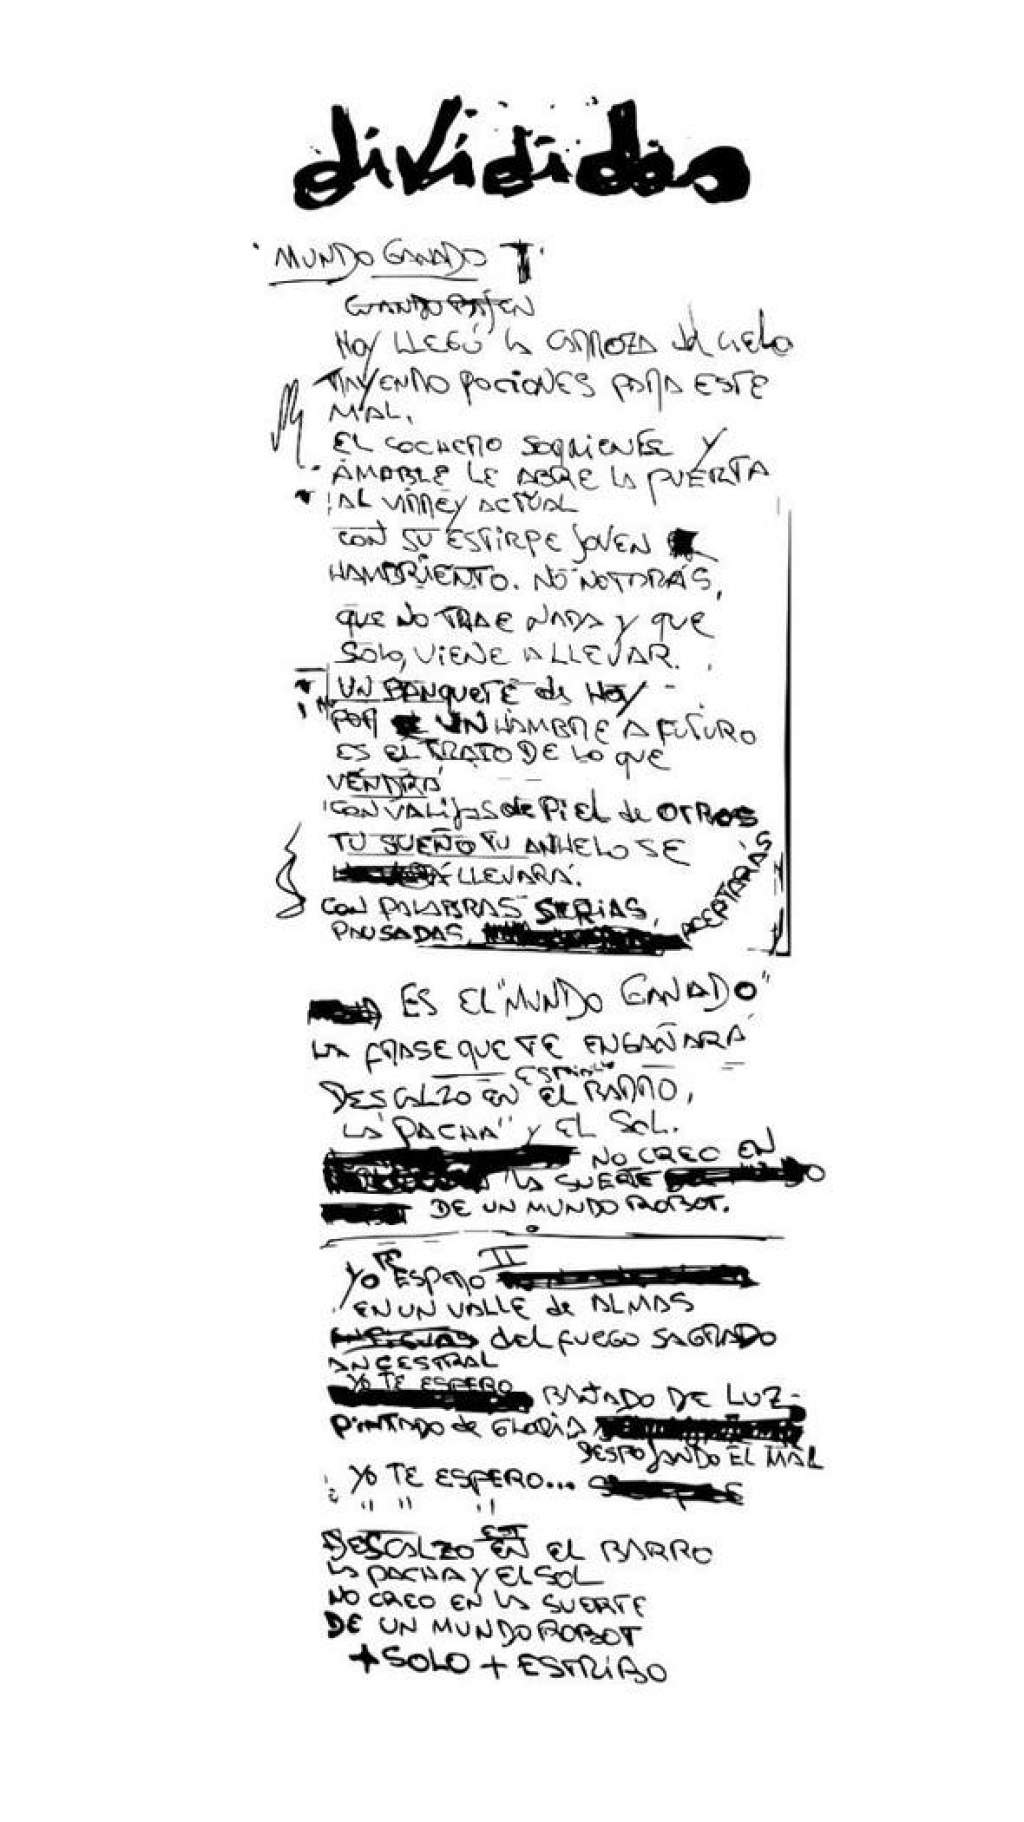 divididos
"MUNDO GANADO"
CUANDO BAJEN
HOY LLEGÓ LA CARROZA del cielo
TRAYENDO POCIONES PARA ESTE
MAL.
EL COCHERO SONRIENTE Y
AMABLE LE ABRE LA PUERTA
AL VIRREY ACTUAL
CON SU ESTIRPE JOVEN
HAMBRIENTO. NO NOTARÁS,
QUE NO TRAE NADA Y QUE
SOLO, VIENE A LLEVAR.
UN BANQUETE de HOY
POR UN HAMBRE A FUTURO
ES EL TRATO DE LO QUE
VENDRÁ
CON VALIJAS de PIEL de OTROS
TU SUEÑO TU ANHELO SE
LLEVARÁ.
CON PALABRAS SERIAS,
PAUSADAS, ACEPTARÁS
ES EL "MUNDO GANADO"
LA FRASE QUE TE ENGAÑARÁ
DESCALZO EN EL BARRO,
LA "PACHA" Y EL SOL.
NO CREO EN
LA SUERTE
DE UN MUNDO ROBOT.
II
YO TE ESPERO
EN UN VALLE de ALMAS
del FUEGO SAGRADO
ANCESTRAL
YO TE ESPERO BAÑADO DE LUZ
PINTADO de GLORIA
DESPOJANDO EL MAL
YO TE ESPERO...
" " "
DESCALZO EN EL BARRO
LA PACHA Y EL SOL
NO CREO EN LA SUERTE
DE UN MUNDO ROBOT
+ SOLO + ESTRIBO